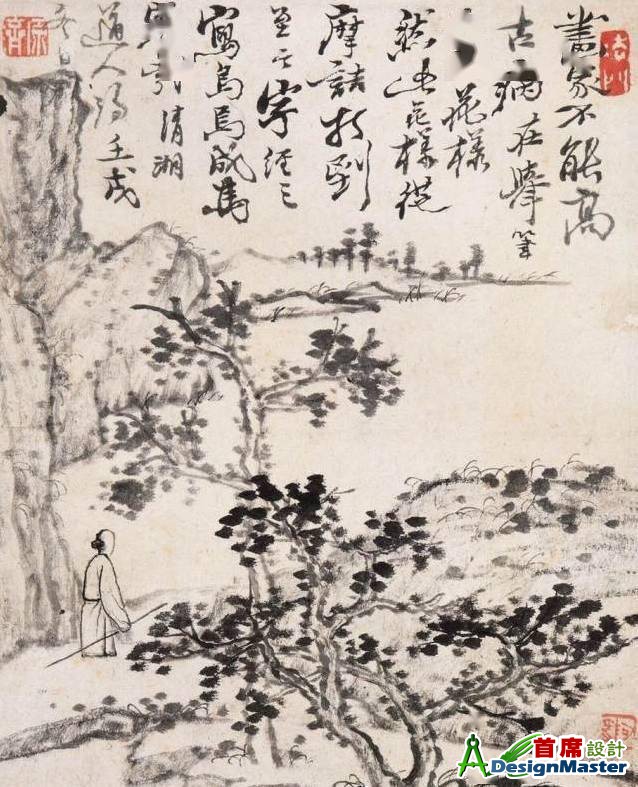 畫家不能高
古病在舉筆
花樣
然此花樣從
摩詰打到
至今字經三
寫烏焉成馬
哉清湘
道人濟壬戌
首席設計
DesignMaster